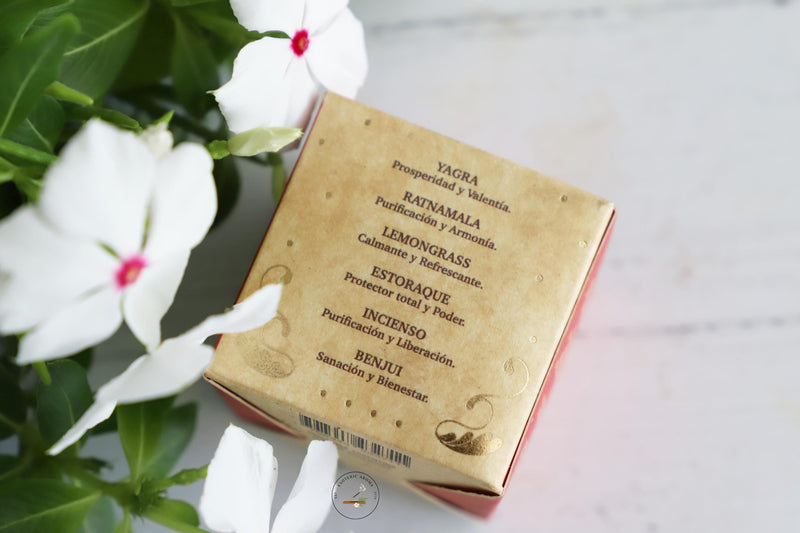 YAGRA
Prosperidad y Valentía.
RATNAMALA
Purificación y Armonía.
LEMONGRASS
Calmante y Refrescante.
ESTORAQUE
Protector total y Poder.
INCIENSO
Purificación y Liberación.
BENJUI
Sanación y Bienestar.
ESOTERIC AROMA